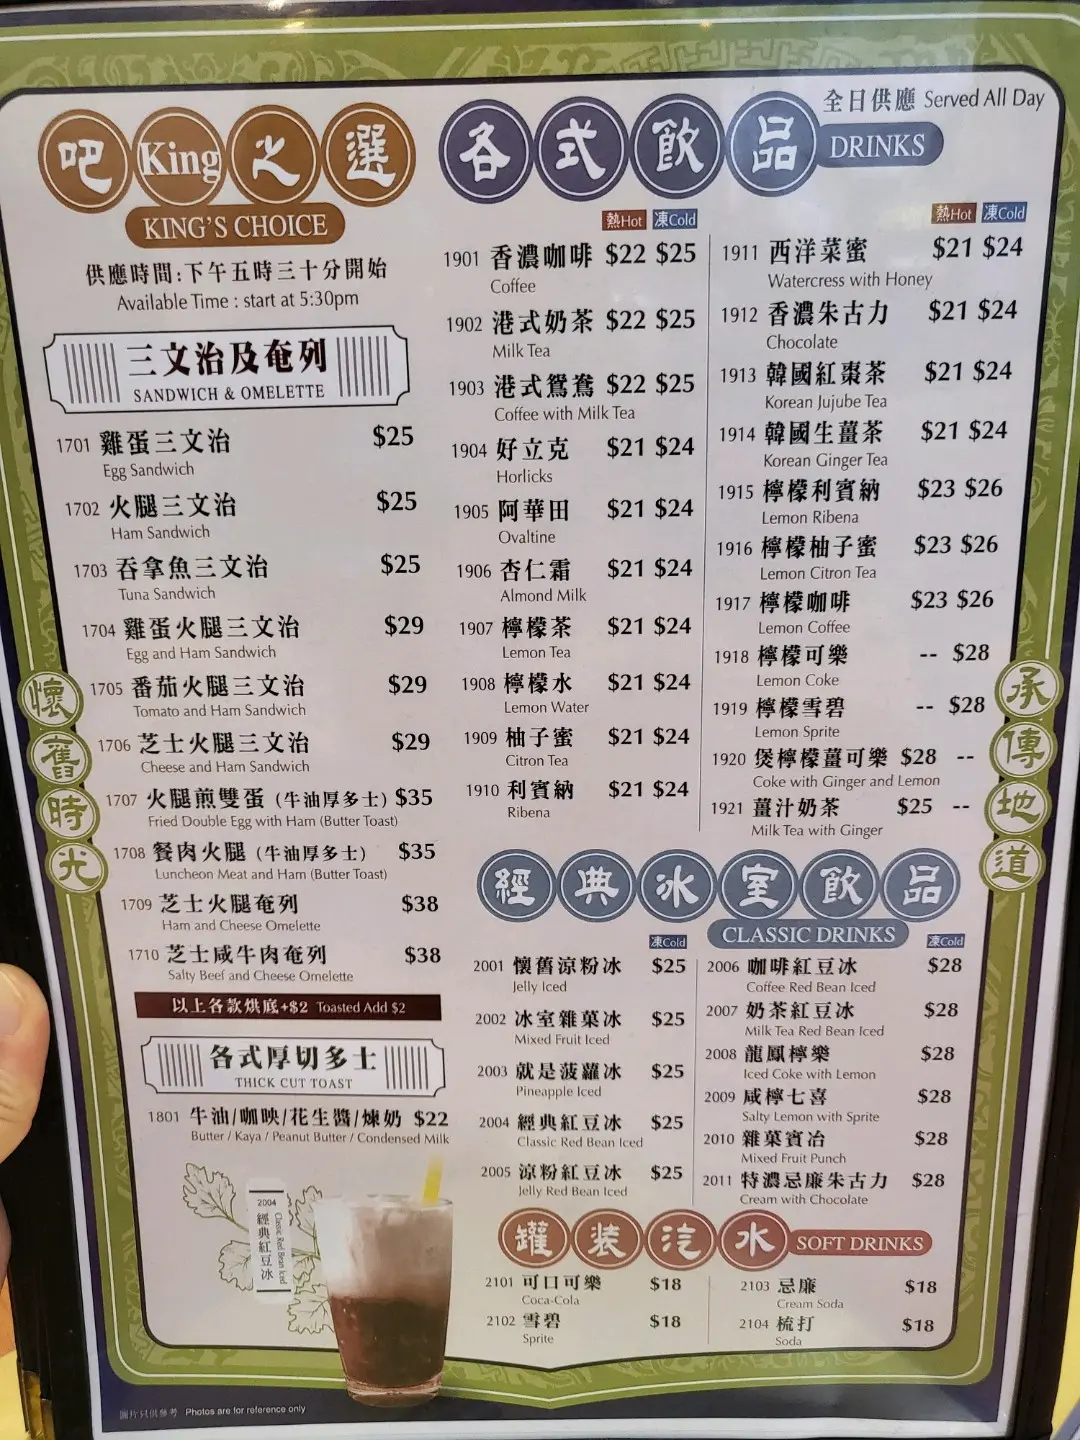 吧King之選
KING'S CHOICE
供應時間:下午五時三十分開始
Available Time : start at 5:30pm
三文治及奄列
SANDWICH & OMELETTE
1701 雞蛋三文治 $25
Egg Sandwich
1702 火腿三文治 $25
Ham Sandwich
1703 吞拿魚三文治 $25
Tuna Sandwich
1704 雞蛋火腿三文治 $29
Egg and Ham Sandwich
1705 番茄火腿三文治 $29
Tomato and Ham Sandwich
1706 芝士火腿三文治 $29
Cheese and Ham Sandwich
1707 火腿煎雙蛋 (牛油厚多士) $35
Fried Double Egg with Ham (Butter Toast)
1708 餐肉火腿 (牛油厚多士) $35
Luncheon Meat and Ham (Butter Toast)
1709 芝士火腿奄列 $38
Ham and Cheese Omelette
1710 芝士咸牛肉奄列 $38
Salty Beef and Cheese Omelette
以上各款烘底+$2 Toasted Add $2
各式厚切多士
THICK CUT TOAST
1801 牛油/咖央/花生醬/煉奶 $22
Butter / Kaya / Peanut Butter / Condensed Milk
2004
經典紅豆冰
Classic Red Bean Iced
圖片只供參考 Photos are for reference only
懷舊時光
全日供應 Served All Day
各式飲品
DRINKS
熱Hot 凍Cold
1901 香濃咖啡 $22 $25
Coffee
1902 港式奶茶 $22 $25
Milk Tea
1903 港式鴛鴦 $22 $25
Coffee with Milk Tea
1904 好立克 $21 $24
Horlicks
1905 阿華田 $21 $24
Ovaltine
1906 杏仁霜 $21 $24
Almond Milk
1907 檸檬茶 $21 $24
Lemon Tea
1908 檸檬水 $21 $24
Lemon Water
1909 柚子蜜 $21 $24
Citron Tea
1910 利賓納 $21 $24
Ribena
熱Hot 凍Cold
1911 西洋菜蜜 $21 $24
Watercress with Honey
1912 香濃朱古力 $21 $24
Chocolate
1913 韓國紅棗茶 $21 $24
Korean Jujube Tea
1914 韓國生薑茶 $21 $24
Korean Ginger Tea
1915 檸檬利賓納 $23 $26
Lemon Ribena
1916 檸檬柚子蜜 $23 $26
Lemon Citron Tea
1917 檸檬咖啡 $23 $26
Lemon Coffee
1918 檸檬可樂 -- $28
Lemon Coke
1919 檸檬雪碧 -- $28
Lemon Sprite
1920 煲檸檬薑可樂 $28 --
Coke with Ginger and Lemon
1921 薑汁奶茶 $25 --
Milk Tea with Ginger
經典冰室飲品
CLASSIC DRINKS
凍Cold
2001 懷舊涼粉冰 $25
Jelly Iced
2002 冰室雜菓冰 $25
Mixed Fruit Iced
2003 就是菠蘿冰 $25
Pineapple Iced
2004 經典紅豆冰 $25
Classic Red Bean Iced
2005 涼粉紅豆冰 $25
Jelly Red Bean Iced
凍Cold
2006 咖啡紅豆冰 $28
Coffee Red Bean Iced
2007 奶茶紅豆冰 $28
Milk Tea Red Bean Iced
2008 龍鳳檸樂 $28
Iced Coke with Lemon
2009 咸檸七喜 $28
Salty Lemon with Sprite
2010 雜菓賓冶 $28
Mixed Fruit Punch
2011 特濃忌廉朱古力 $28
Cream with Chocolate
罐裝汽水
SOFT DRINKS
2101 可口可樂 $18
Coca-Cola
2102 雪碧 $18
Sprite
2103 忌廉 $18
Cream Soda
2104 梳打 $18
Soda
承傳地道